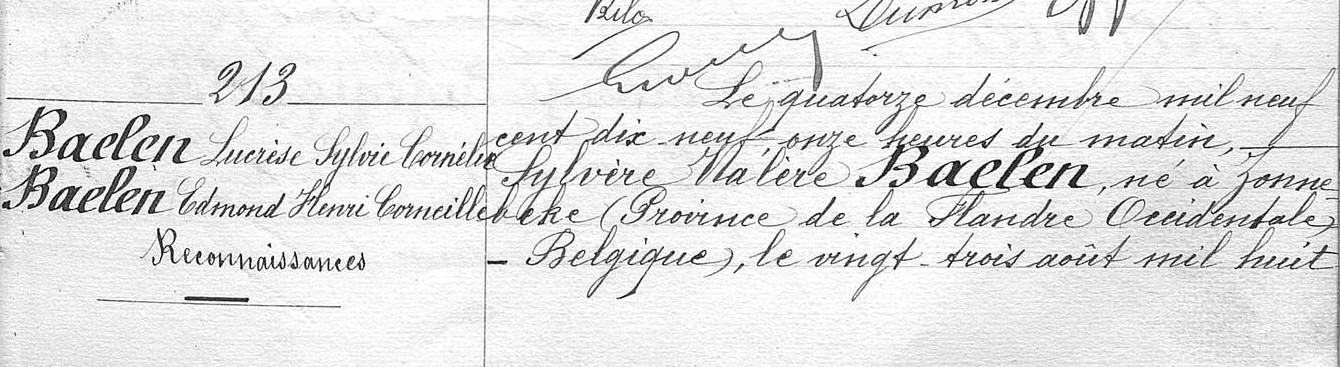 213
Baelen Lucrèse Sylvie Cornélie
Baelen Edmond Henri Corneille
Reconnaissances
Le quatorze décembre mil neuf
cent dix-neuf, onze heures du matin,
Sylvère Valère Baelen, né à Zonne-
beke (Province de la Flandre Occidentale,
- Belgique), le vingt-trois août mil huit